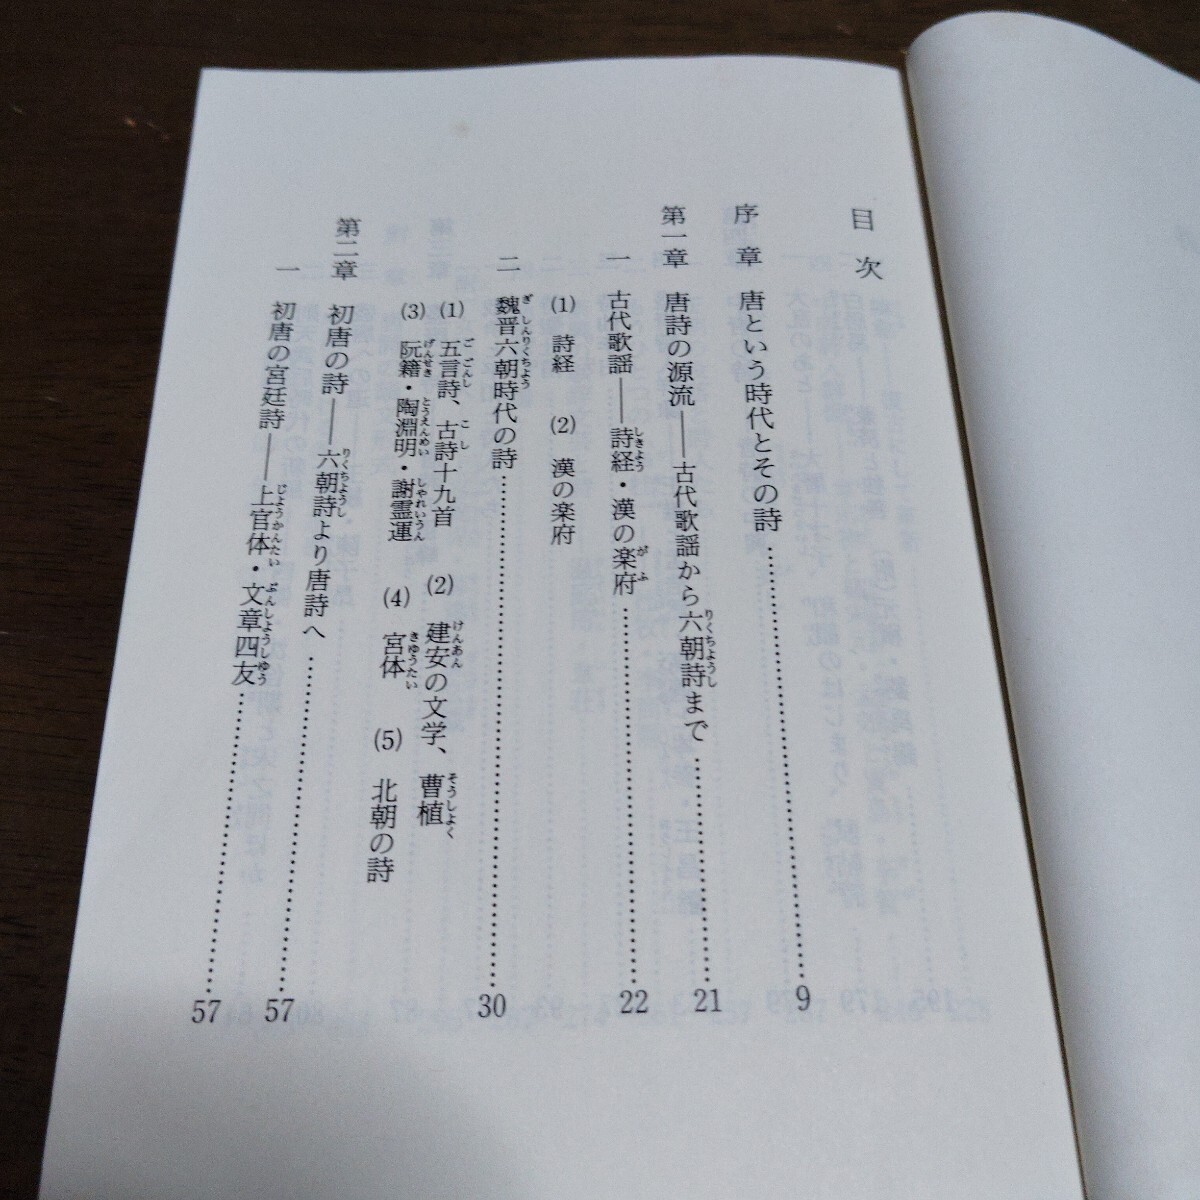 目次
序章　唐という時代とその詩……9
第一章　唐詩の源流――古代歌謡から六朝詩まで……21
一　古代歌謡――詩経・漢の楽府……22
(1)　詩経　(2)　漢の楽府
二　魏晋六朝時代の詩……30
(1)　五言詩、古詩十九首　(2)　建安の文学、曹植
(3)　阮籍・陶淵明・謝霊運　(4)　宮体　(5)　北朝の詩
第二章　初唐の詩――六朝詩より唐詩へ……57
一　初唐の宮廷詩――上官体・文章四友……57